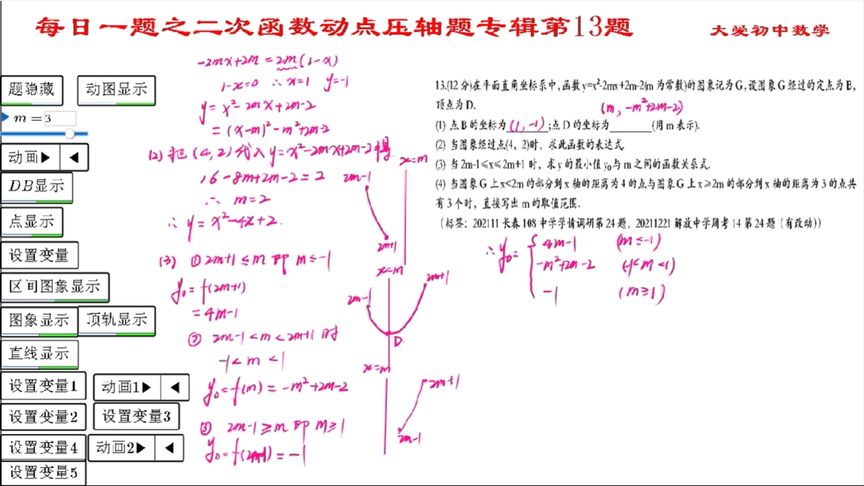 每日一题之二次函数动点压轴题专辑第13题
大爱初中数学
题隐藏
动图显示
m = 3
动画▶
◀
DB显示
点显示
设置变量
区间图象显示
图象显示
顶轨显示
直线显示
设置变量1
动画1▶
◀
设置变量2
设置变量3
设置变量4
动画2▶
◀
设置变量5
-2mx+2m = 2m(1-x)
1-x=0 ∴x=1 y=-1
y= x²-2mx+2m-2
=(x-m)²-m²+2m-2
(2) 把(4,2)代入y=x²-2mx+2m-2得
16-8m+2m-2=2
∴ m=2
∴ y=x²-4x+2.
(3) ① 2m+1≤m 即 m≤-1
y₀=f(2m+1)
=4m-1
② 2m-1<m<2m+1 时
-1<m<1
y₀=f(m)=-m²+2m-2
③ 2m-1≥m 即 m≥1
y₀=f(2m-1)=-1
x=m
2m-1
2m+1
x=m
2m-1
2m+1
D
x=m
2m+1
2m-1
13.(12分)在平面直角坐标系中,函数y=x²-2mx+2m-2(m为常数)的图象记为G,设图象G经过的定点为B,
顶点为D.
(m, -m²+2m-2)
(1) 点B的坐标为(1,-1);点D的坐标为________(用m表示).
(2) 当图象经过点(4, 2)时, 求此函数的表达式.
(3) 当2m-1≤x≤2m+1时, 求y的最小值y₀与m之间的函数关系式.
(4) 当图象G上x<2m的部分到x轴的距离为4的点与图象G上x≥2m的部分到x轴的距离为3的点共
有3个时, 直接写出m的取值范围.
(标答: 202111长春108中学学情调研第24题, 20211221解放中学周考14第24题(有改动))
∴ y₀= { 4m-1 (m≤-1)
-m²+2m-2 (-1<m<1)
-1 (m≥1)